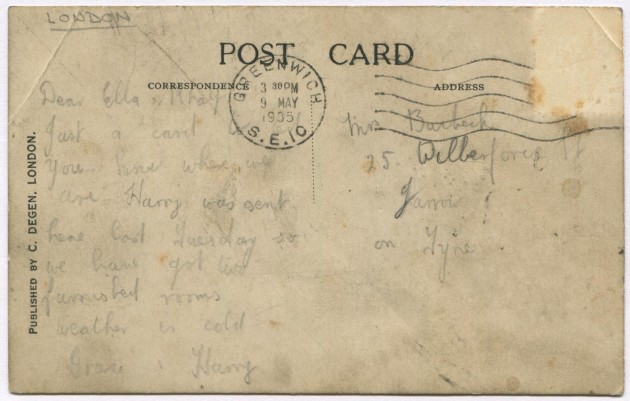 LONDON
POST CARD
CORRESPONDENCE
ADDRESS
GREENWICH
3 30PM
9 MAY
1935
S.E.10
PUBLISHED BY C. DEGEN, LONDON.
Dear Ella &
Just a card to let
you know where we
are Harry was sent
here last Tuesday so
we have got two
furnished rooms
weather is cold
Grace & Harry
Mrs
25 Wilberforce St
Jarrow
on Tyne